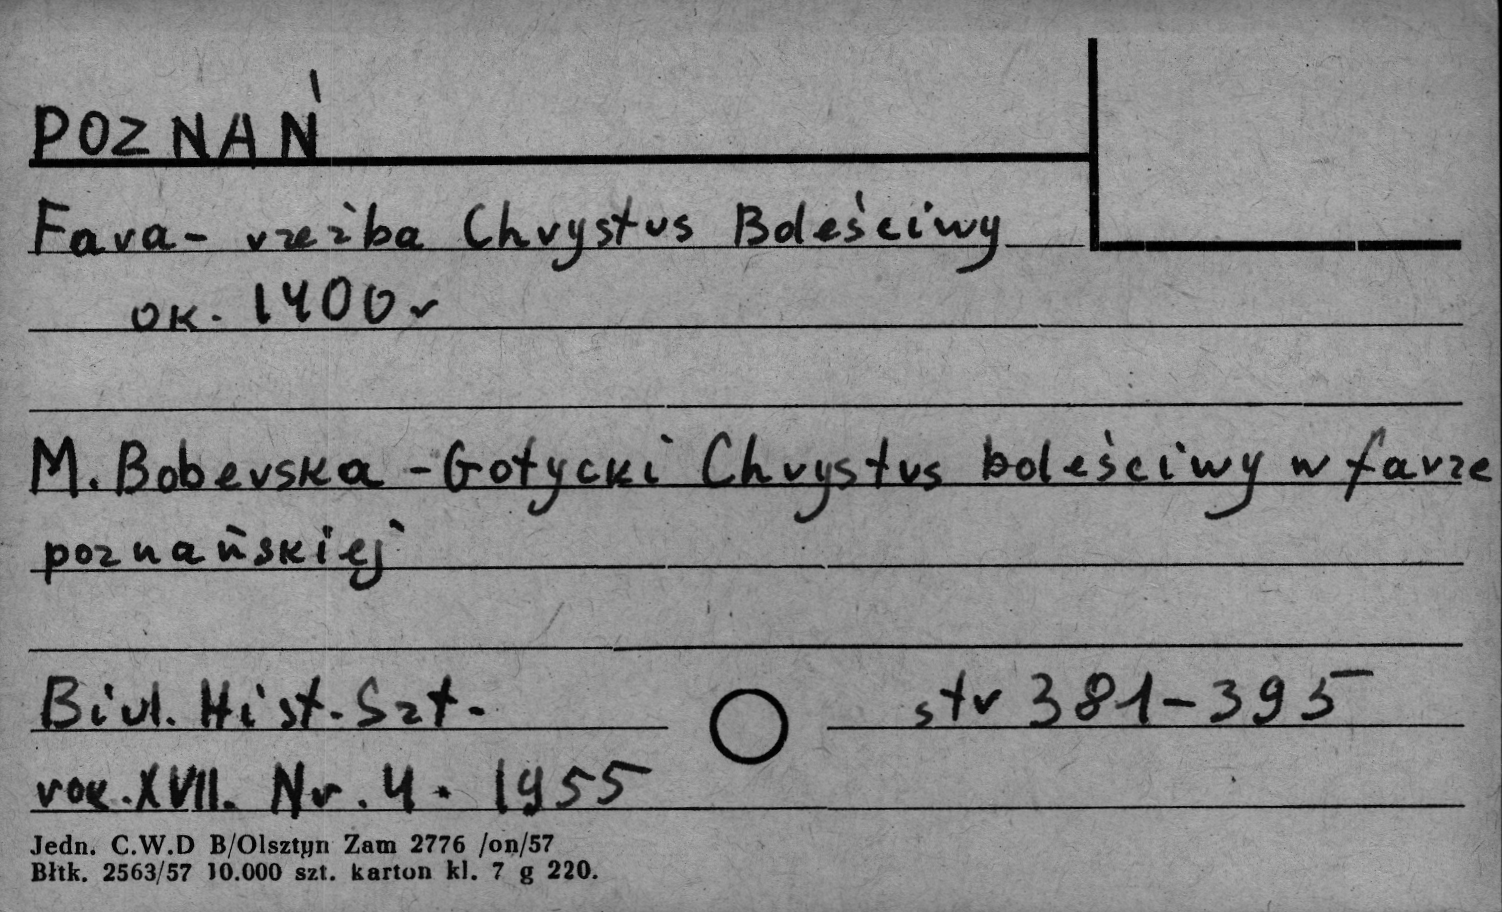 POZNAŃ
Fara - rzeźba Chrystus Boleściwy
ok. 1400 r
M. Boberska - Gotycki Chrystus boleściwy w farze
poznańskiej
Biul. Hist. Szt. str 381-395
rok. XVII. Nr. 4. 1955
Jedn. C.W.D B/Olsztyn Zam 2776 /on/57
Błtk. 2563/57 10.000 szt. karton kl. 7 g 220.